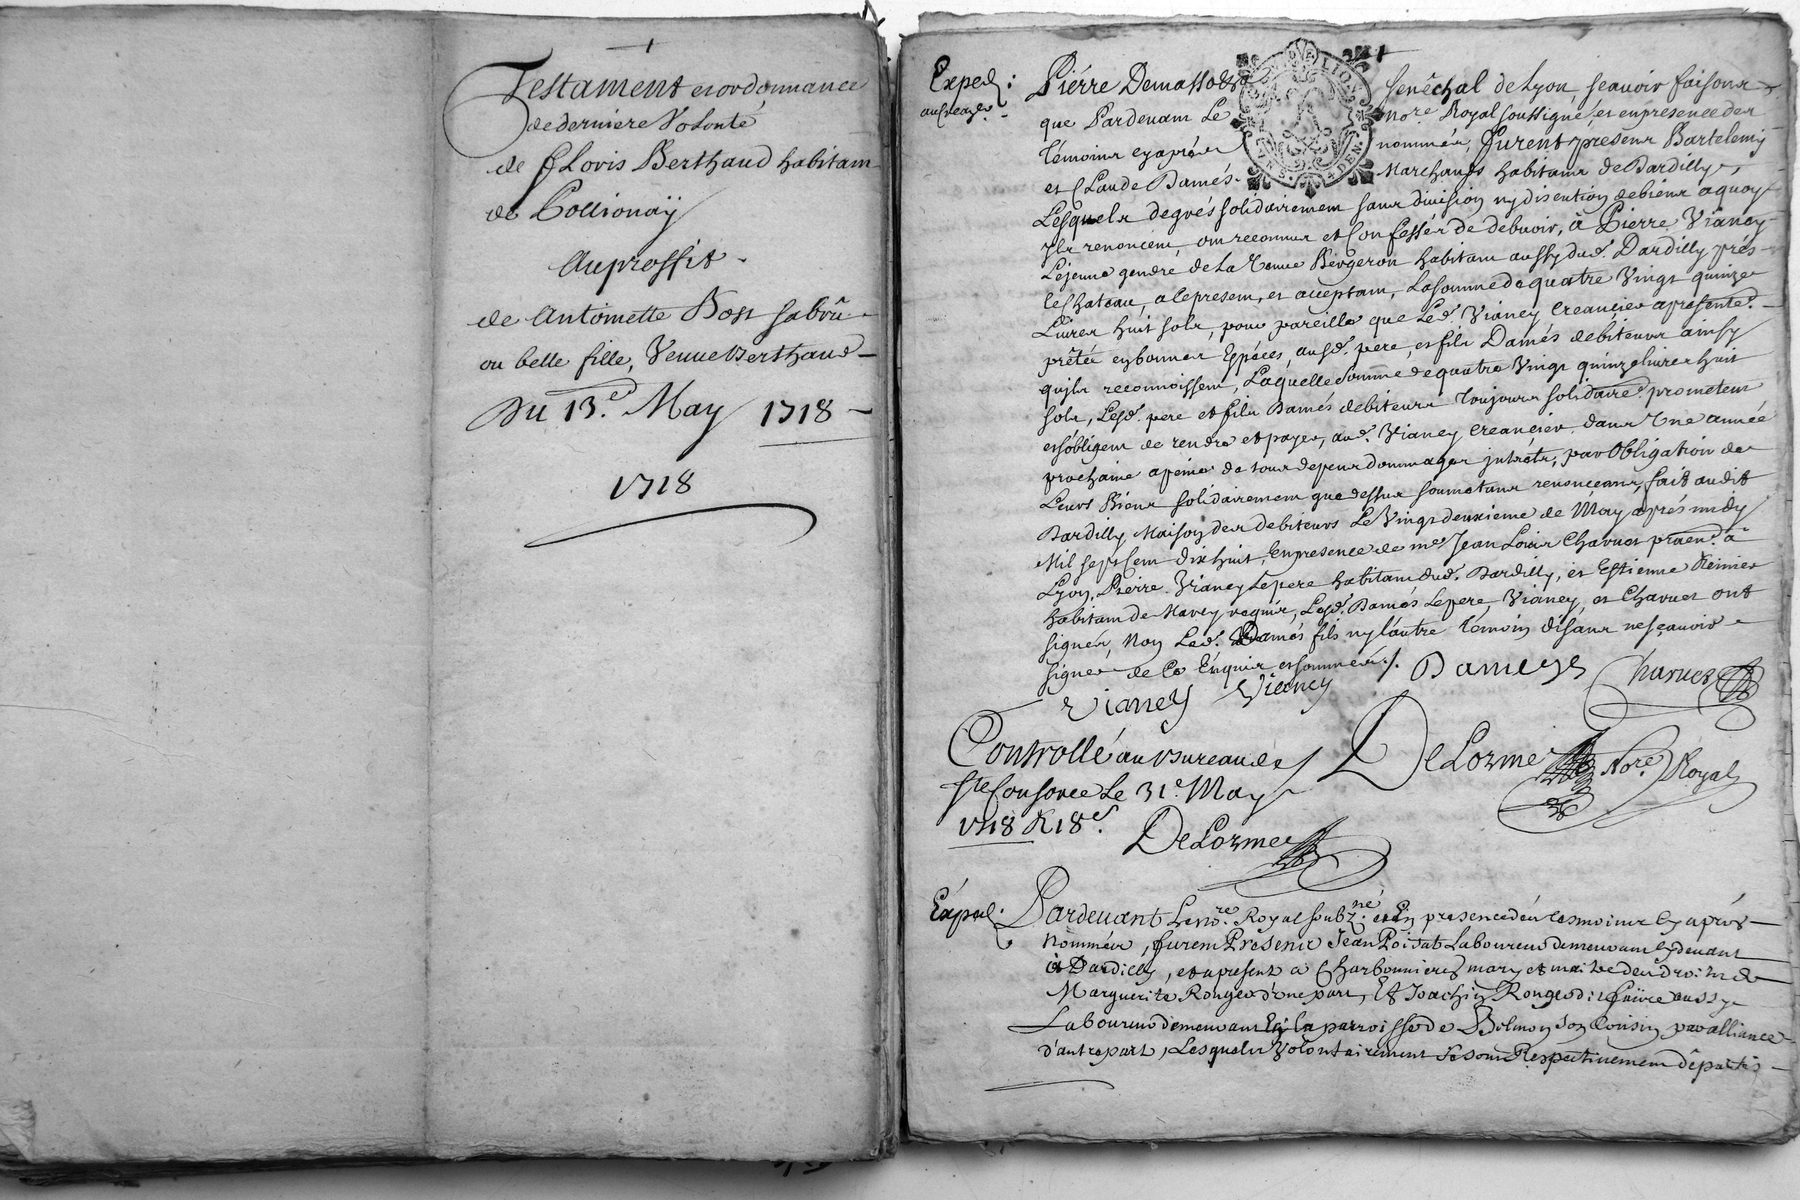 Testament et ordonnance
de derniere Volonté
de Lovis Berthaud habitant
de Pollionaÿ
Auproffit
de Antoinette Bost sabrû
ou belle fille, Veuve Berthaud
Du 13.e May 1718
1718
Exped:
Piérre Demassodz Senêchal de Lyon, scavoir faisons
que Pardevant Le no.re Royal soussigné, et en presence des
témoins cy aprés nommés, furent présens Bartelemy
et Claude Damés Marchands habitans de Dardilly,
Lesquels de grés solidairement sans division ny discution de biens a quoy
ils renoncent ont reconnu et Confessér de debvoir, à Pierre Vianey
Lejeune gendre de la Veuve Bergeron habitant aussy dud. Dardilly prés
le Chateau, a ce present, et acceptant, La somme de quatre Vingt quinze
Livres huit sols, pour pareille que Led. Vianey Creancier a presente.
prêtée en bonnes Espéces, ausd. pere, et fils Damés debiteurs ainsy
quils reconnoissent, Laquelle somme de quatre Vingt quinze livres huit
sols, Lesd. pere et fils Damés debiteurs toujours solidaire. prometent
et sobligent de rendre et payer, aud. Vianey creancier dans Une année
prochaine a peine de tous depens dommages intrêts, par Obligation de
Leurs Biens solidairement que dessus soumetans renonceans, fait audit
Dardilly Maison des debiteurs Le Vingt deuxieme de May aprés midy
Mil sept Cent dix huit, En presence de me Jean Louis Charuet praen. à
Lyon, Pierre Vianey Le pere habitant dud. Dardilly, et Estienne
habitant de Marcy requis, Lesd. Damés Le pere, Vianey, et Charuet ont
signér, Non Led. Damés fils ny lautre témoin disans ne sçavoir
signer de Ce Enquis et sommés ./. Dameys Charuet
Vianey Vianey
Controllé au Bureau de DeLorme No.re Royal
ste Consorce Le 31e May
1718 R 18s. DeLorme
Exped:
Pardevant Le no.re Royal soubzné et En presence des tesmoins Cy aprés
Nommés, furent Présent Jean Poisat Laboureur demeurant Cy devant
à Dardilly, et a present a Charbonnieres mary et maitre des droits de
Marguerite Ronger d'une part, Et Joachin Ronger dit faivre aussy
Laboureur demeurant En la parroisse de son Cousin par alliance
d'autre part, Lesquels Volontairement se sont Respectivement départis